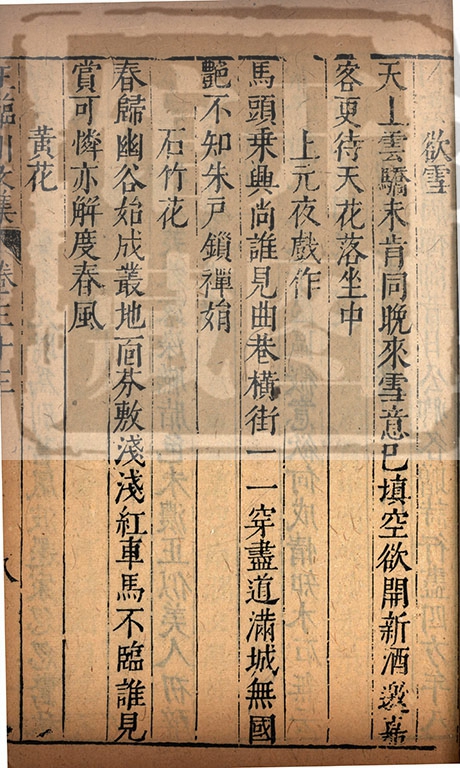 欲雪
天上雲驕未肯同晚來雪意已填空欲開新酒邀嘉
客更待天花落坐中
上元夜戲作
馬頭乗興尚誰見曲巷橫街一一穿盡道滿城無國
艷不知朱戸鎖嬋娟
石竹花
春歸幽谷始成叢地面芬敷淺淺紅車馬不臨誰見
賞可憐亦解度春風
黃花
王臨川文集 卷三十三 八